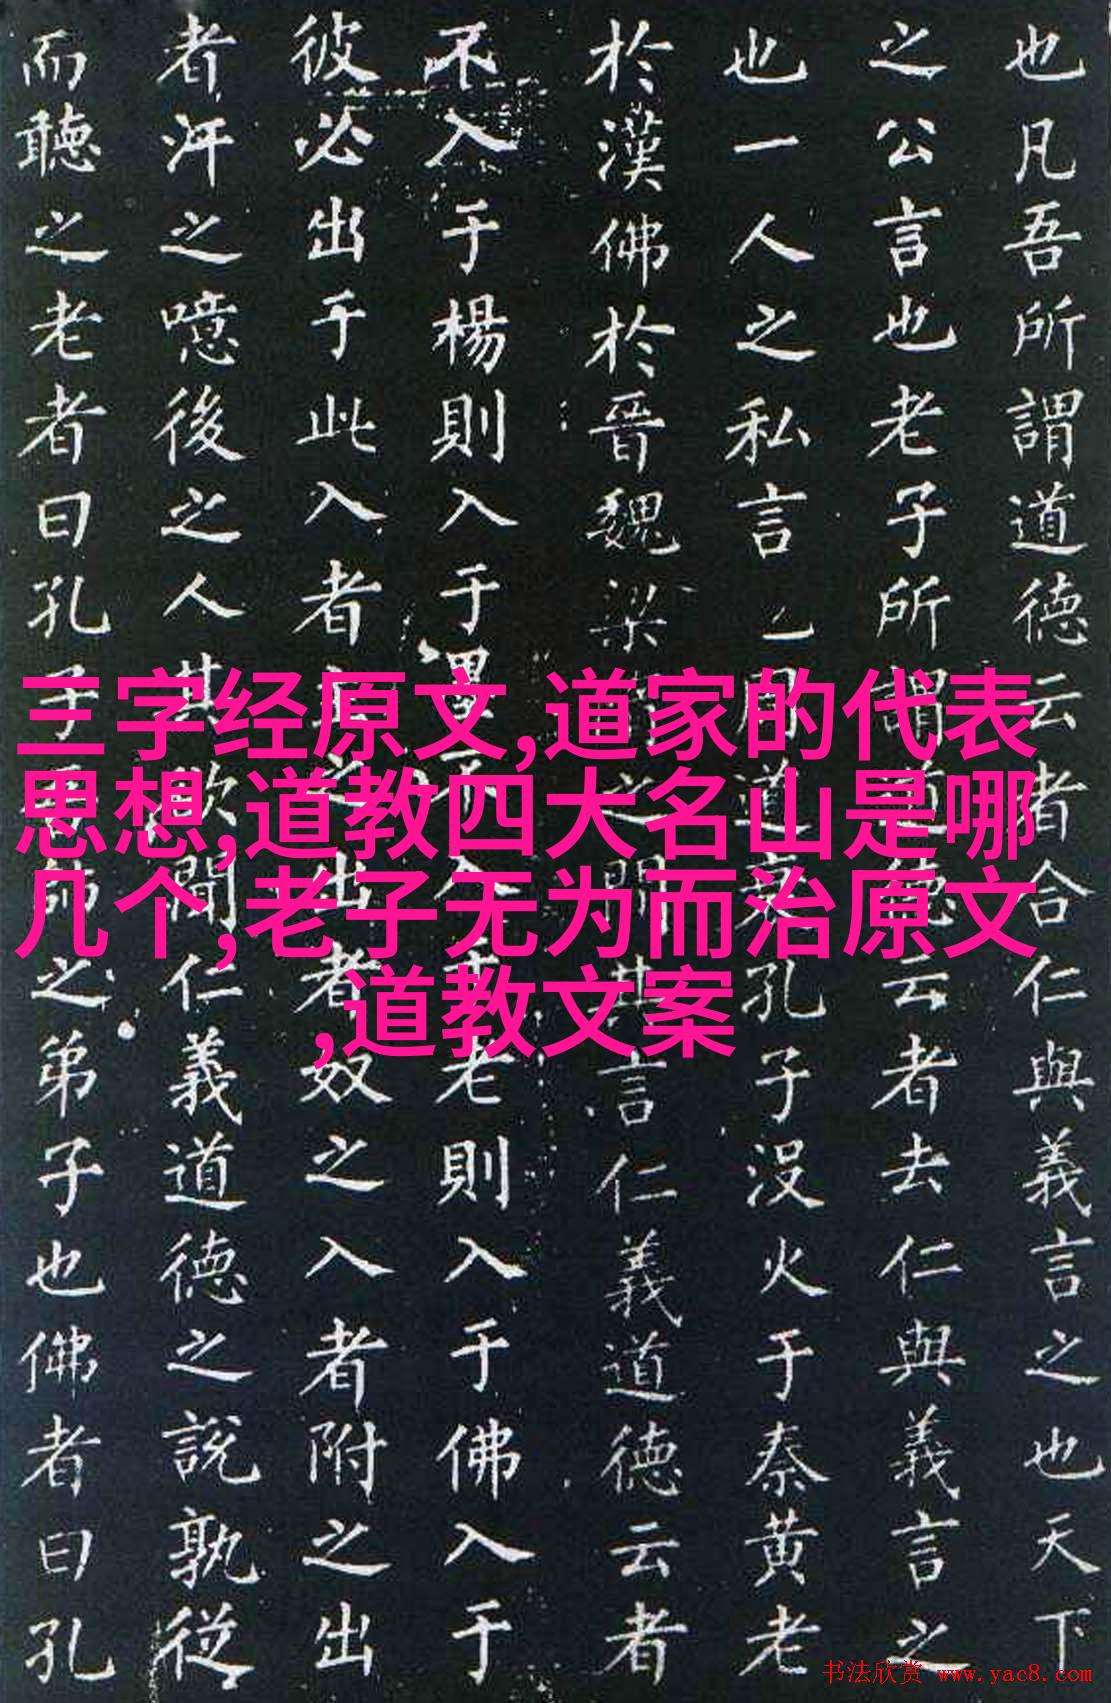 也凡吾所謂道德云者合仁與義言之也天下
之公言也老子所謂道德云者去仁與義言之
也一人之私言也周道衰孔子没火于秦黄老
於漢佛於晉魏梁之間其言仁義道德云者
不入于楊則入于墨不入于老則入于佛入于
彼必出于此入者之出者奴之入者附之出
者汙之噫後之人其欲聞仁義道德之説孰從
而聽之老者曰孔子師之弟子也佛者曰孔
三字经原文,道家的代表
思想,道教四大名山是哪
几个,老子无为而治原文
,道教文案
书法欣赏 www.yac8.com